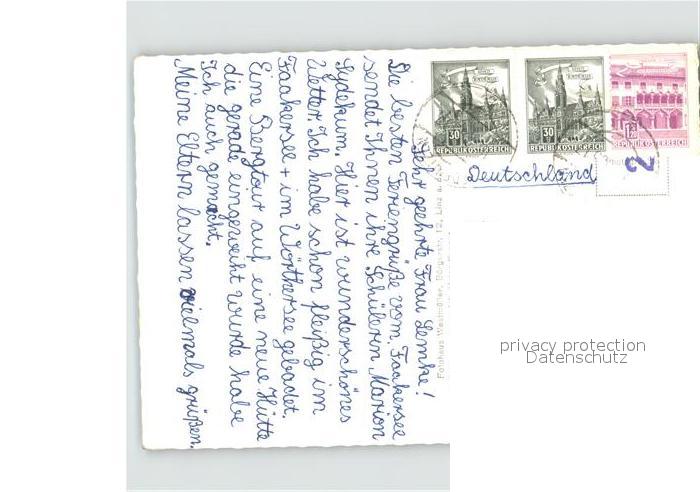 Sehr geehrte Frau Lemke!
Die besten Feriengrüße vom Faakersee
sendet Ihnen ihre Schülerin Marion
Sydekum. Hier ist wunderschönes
Wetter. Ich habe schon fleißig im
Faakersee + im Wörthersee gebadet.
Eine Bergtour auf eine neue Hütte
die gerade eingeweiht wurde habe
Ich auch gemacht.
Meine Eltern lassen vielmals grüßen.
30
REPUBLIK ÖSTERREICH
30
REPUBLIK ÖSTERREICH
REPUBLIK ÖSTERREICH
Deutschland
2
Fotohaus
Linz
privacy protection
Datenschutz